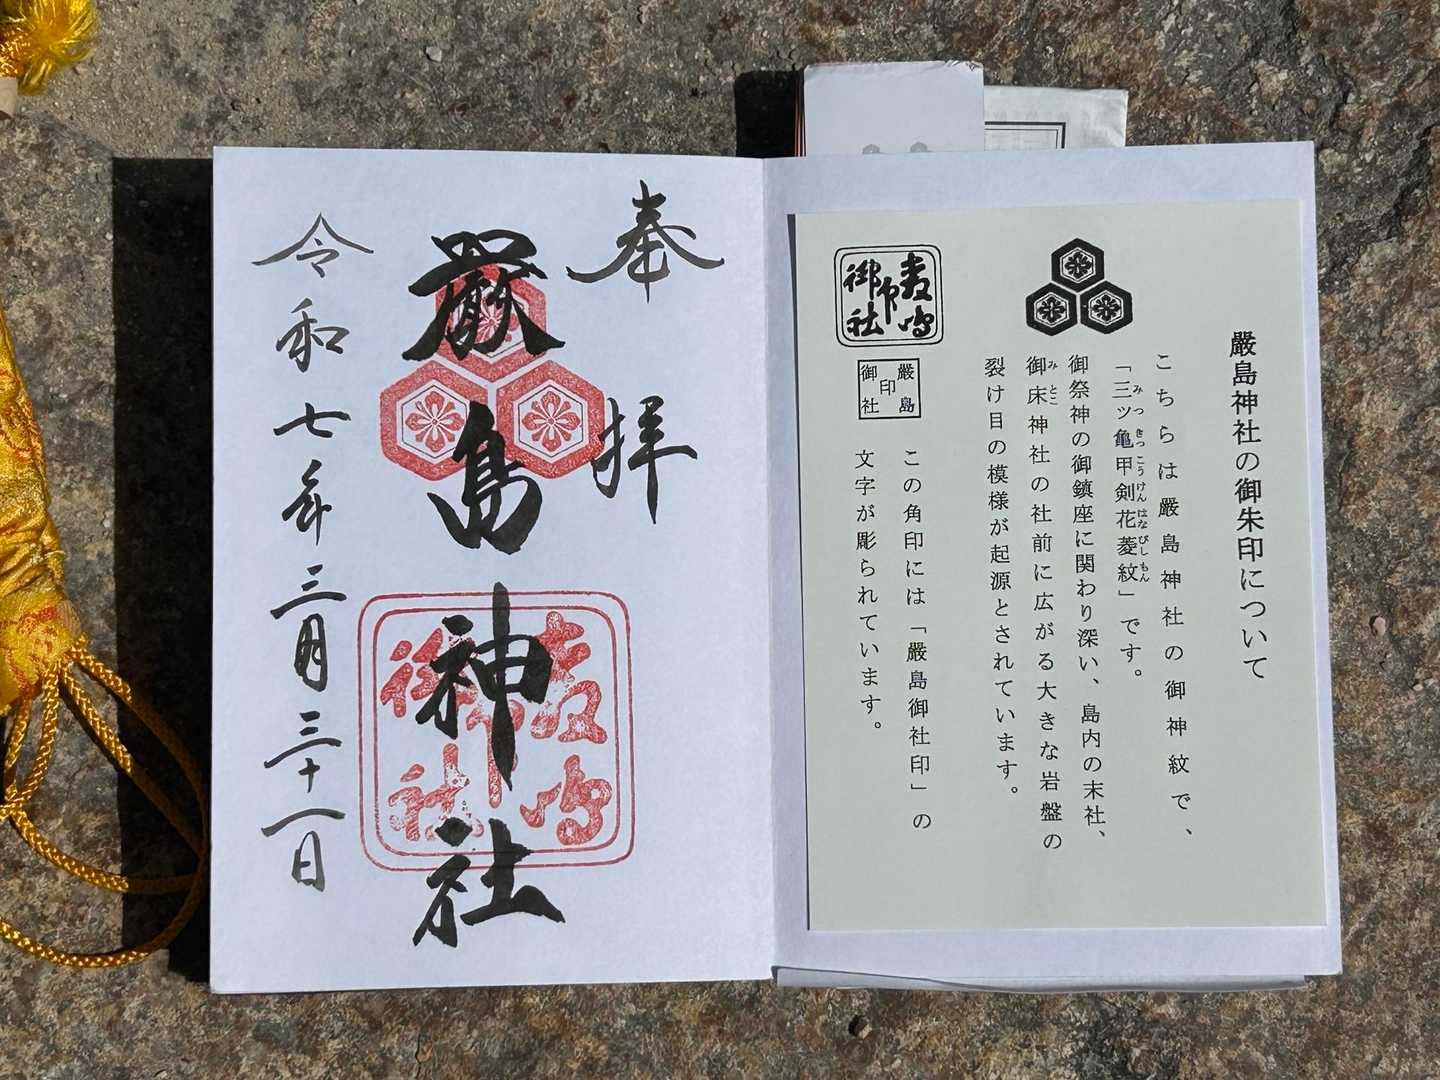 嚴島神社の御朱印について
こちらは嚴島神社の御神紋で、
「三ツ亀甲剣花菱紋」です。
みつ きっ こう けん はな びし もん
御祭神の御鎮座に関わり深い、島内の末社、
御床神社の社前に広がる大きな岩盤の
み とこ
裂け目の模様が起源とされています。
嚴島
印
御社
嚴島
印
御社
この角印には「嚴島御社印」の
文字が彫られています。
奉拝
嚴島神社
嚴島
印
御社
令和七年三月三十一日